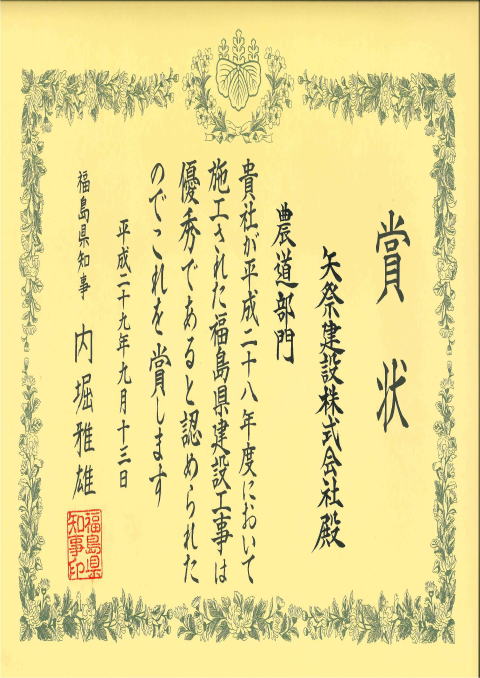 賞状
矢祭建設株式会社殿
農道部門
貴社が平成二十八年度において
施工された福島県建設工事は
優秀であると認められた
のでこれを賞します
平成二十九年九月十三日
福島県知事 内堀雅雄
福島県
知事印